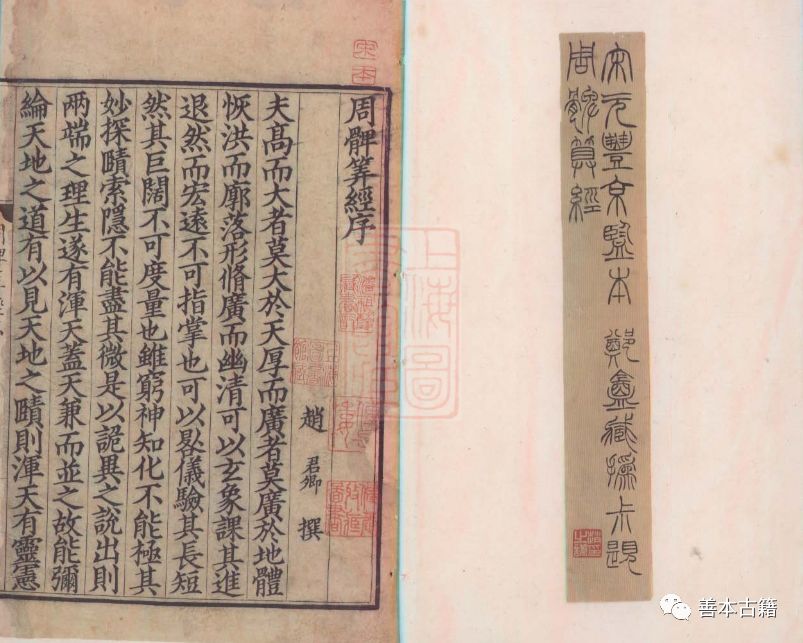 宋元豐京監本 鄭盦藏撝尗題
周髀算經
宋本
周髀筭經序
趙 君卿 撰
夫髙而大者莫大於天厚而廣者莫廣於地體
恢洪而廓落形脩廣而幽清可以玄象課其進
退然而宏遠不可指掌也可以晷儀驗其長短
然其巨闊不可度量也雖窮神知化不能極其
妙探賾索隱不能盡其微是以詭異之說出則
兩端之理生遂有渾天蓋天兼而並之故能彌
綸天地之道有以見天地之賾則渾天有靈憲
上海圖
善本古籍